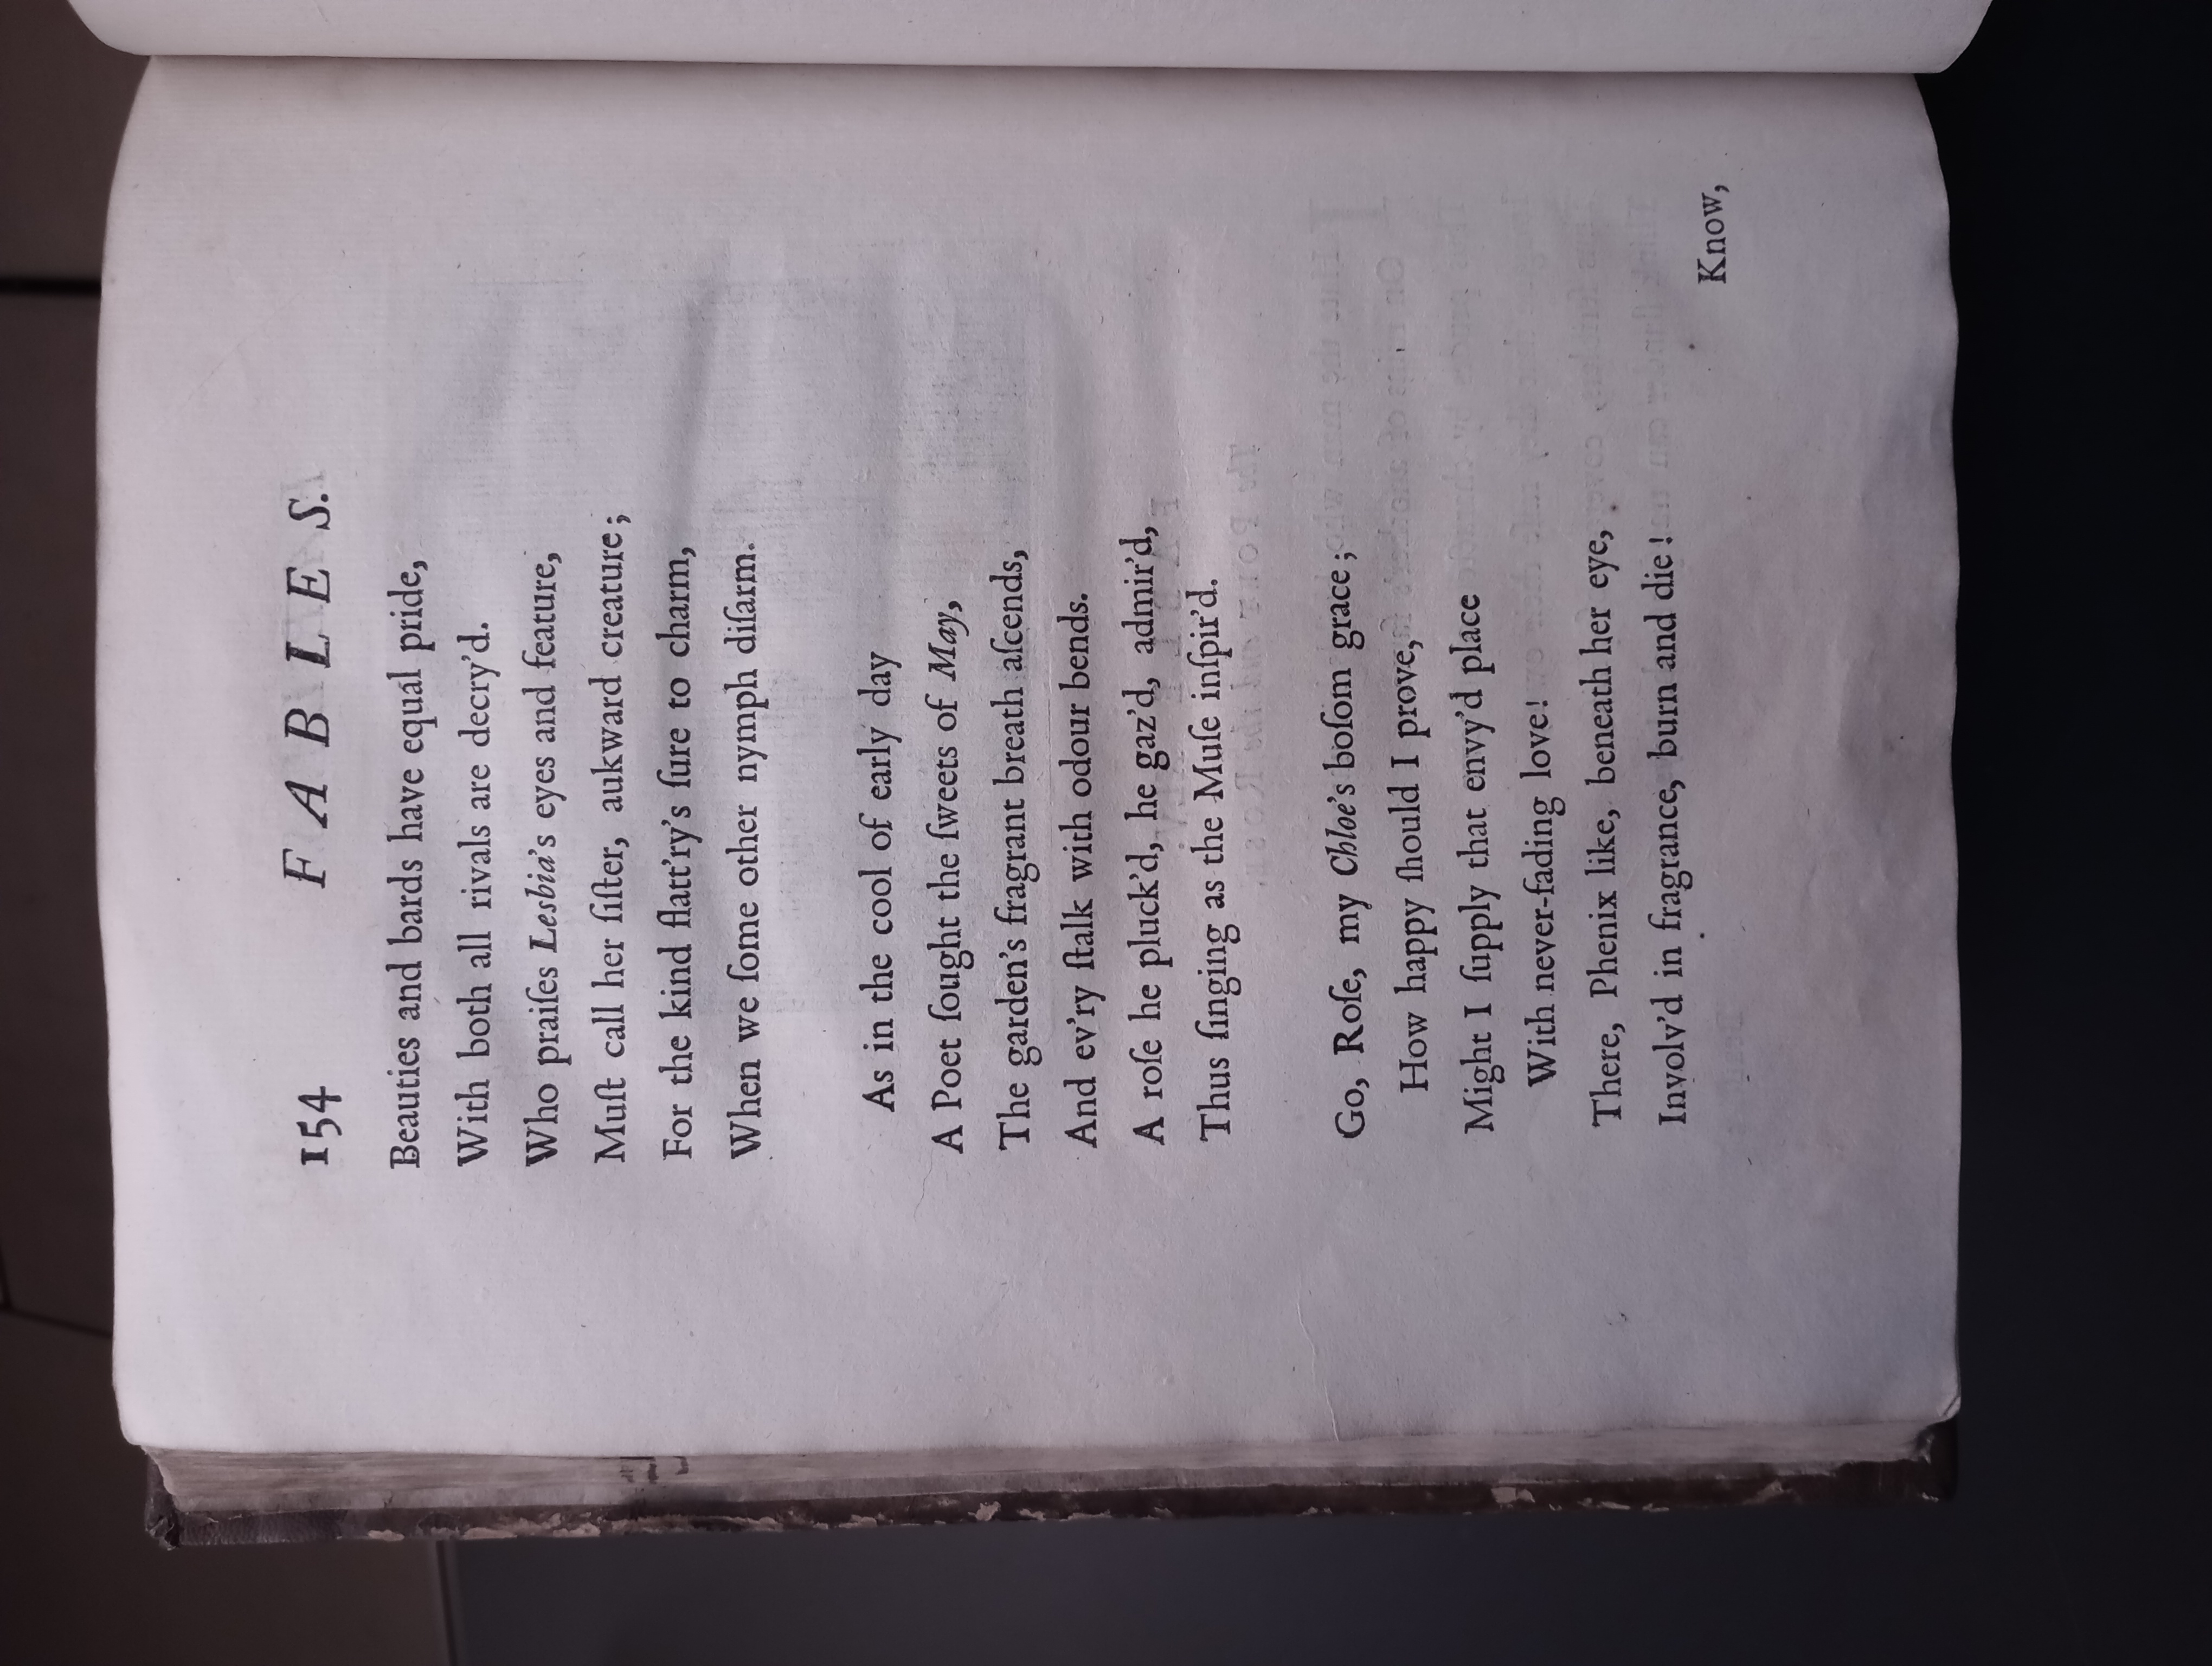 154 FABLES.
Beauties and bards have equal pride,
With both all rivals are decry'd.
Who praiſes Lesbia's eyes and feature,
Muſt call her ſiſter, aukward creature;
For the kind flatt'ry's ſure to charm,
When we ſome other nymph diſarm.
As in the cool of early day
A Poet ſought the ſweets of May,
The garden's fragrant breath aſcends,
And ev'ry ſtalk with odour bends.
A roſe he pluck'd, he gaz'd, admir'd,
Thus ſinging as the Muſe inſpir'd.
Go, Roſe, my Chloe's boſom grace;
How happy ſhould I prove,
Might I ſupply that envy'd place
With never-fading love!
There, Phenix like, beneath her eye,
Involv'd in fragrance, burn and die!
Know,